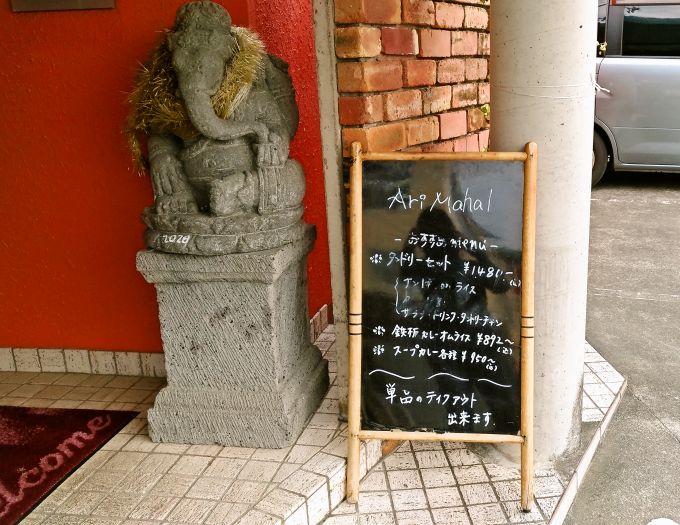 Ari Mahal
- おすすめ menu -
※ タンドリーセット ¥1481~
ナン or ライス
サラダ・ドリンク・タンドリーチキン
※ 鉄板カレーオムライス ¥892~
※ スープカレー各種 ¥950~
単品のテイクアウト
出来ます.
2028
welcome